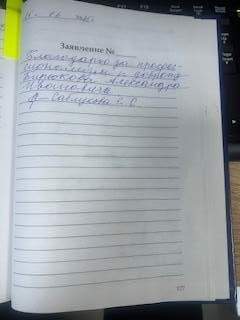 Заявление №
Благодарю за профес-
сионализм и доброту
Бирюкова Александра
Ивановича
Савчукова Е. С.
127